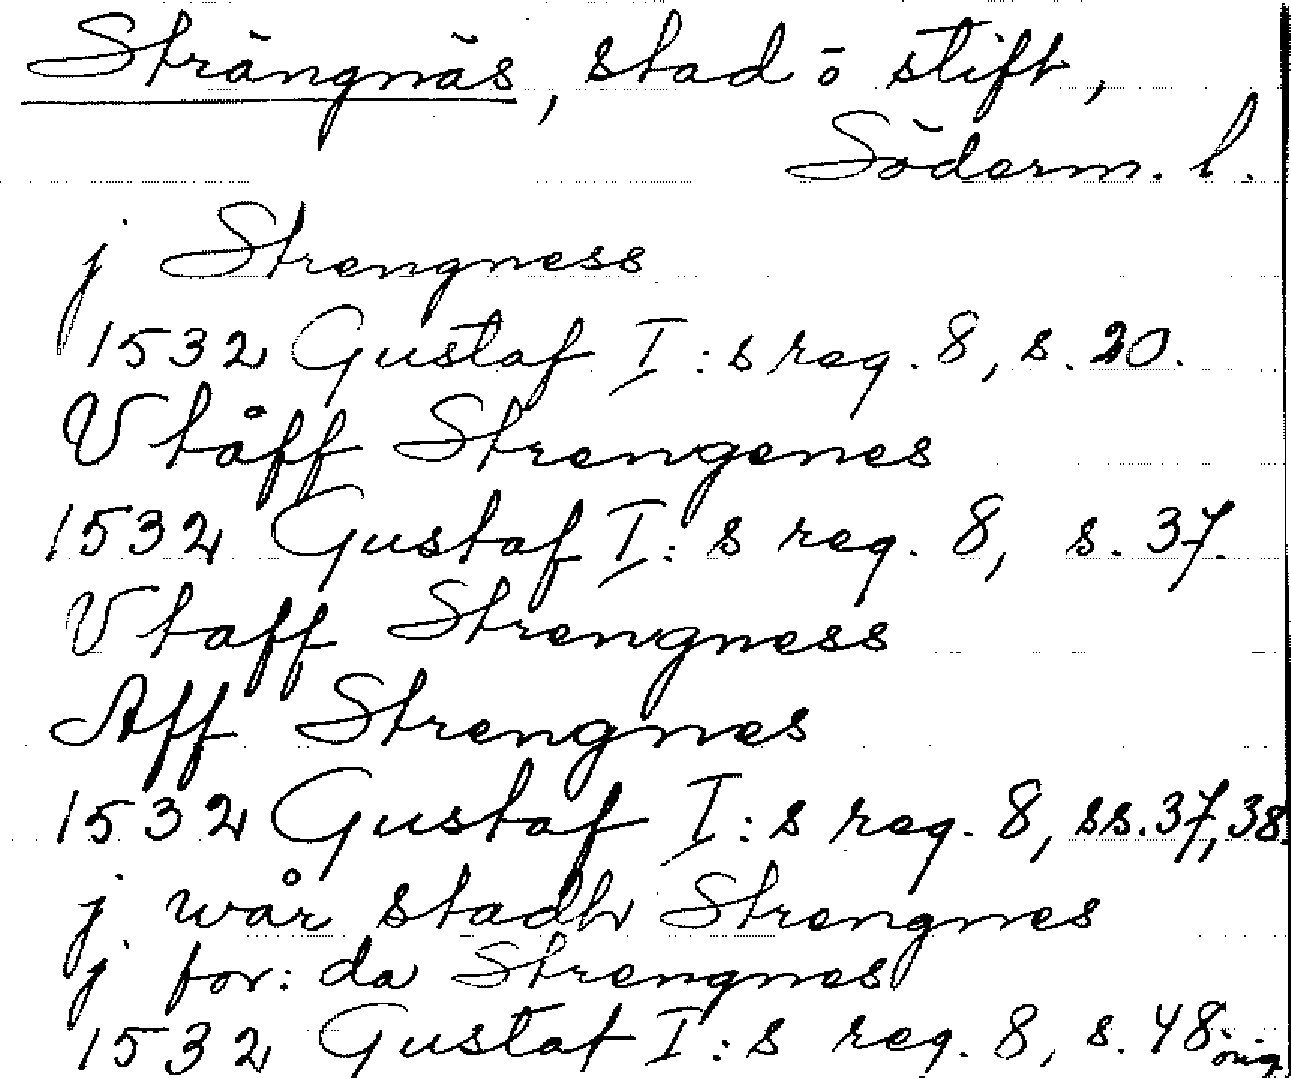 Strängnäs, stad o stift,
Söderm. l.
j Strengness
1532 Gustaf I:s reg. 8, s. 20.
Vtåff Strengenes
1532 Gustaf I:s reg. 8, s. 37.
Vtaff Strengness
Aff Strengnes
1532 Gustaf I:s reg. 8, ss. 37, 38.
j wår stadh Strengnes
j for:da Strengnes
1532 Gustaf I:s reg. 8, s. 48. orig.